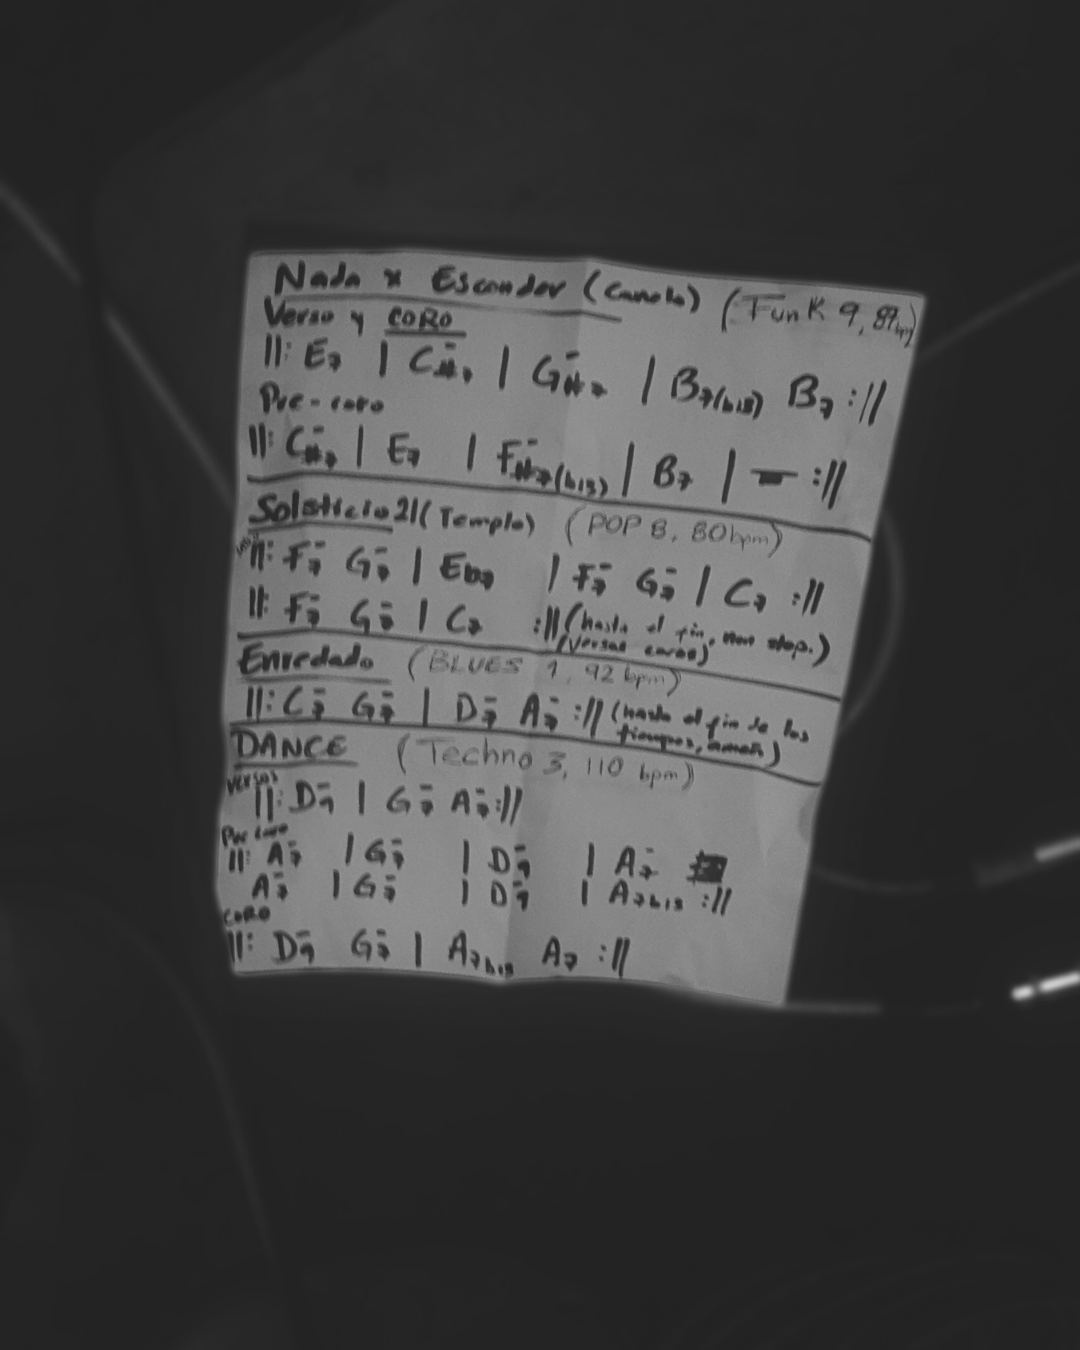 Nada x Esconder (Canelo) (Funk 9, 89bpm)
Verso y CORO
||: E7 | C#-7 | G#-7 | B7(bis) B7 :||
Pre-coro
||: C#-7 | E7 | F#-7(bis) | B7 | – :||
Solsticio 21 (Templo) (POP 8, 80bpm)
||: F-7 G-7 | Eb7 | F-7 G-7 | C7 :||
||: F-7 G-7 | C7 :|| (hasta el fin, non stop.)
(Versos coros)
Enredado (BLUES 1, 92 bpm)
||: C-7 G-7 | D-7 A-7 :|| (hasta el fin de los
tiempos, amen)
DANCE (Techno 3, 110 bpm)
Versos
||: D-9 | G-7 A-7 :||
Pre coro
||: A-7 | G-7 | D-9 | A-7
A-7 | G-7 | D-9 | A7bis :||
CORO
||: D-9 G-7 | A7bis A7 :||